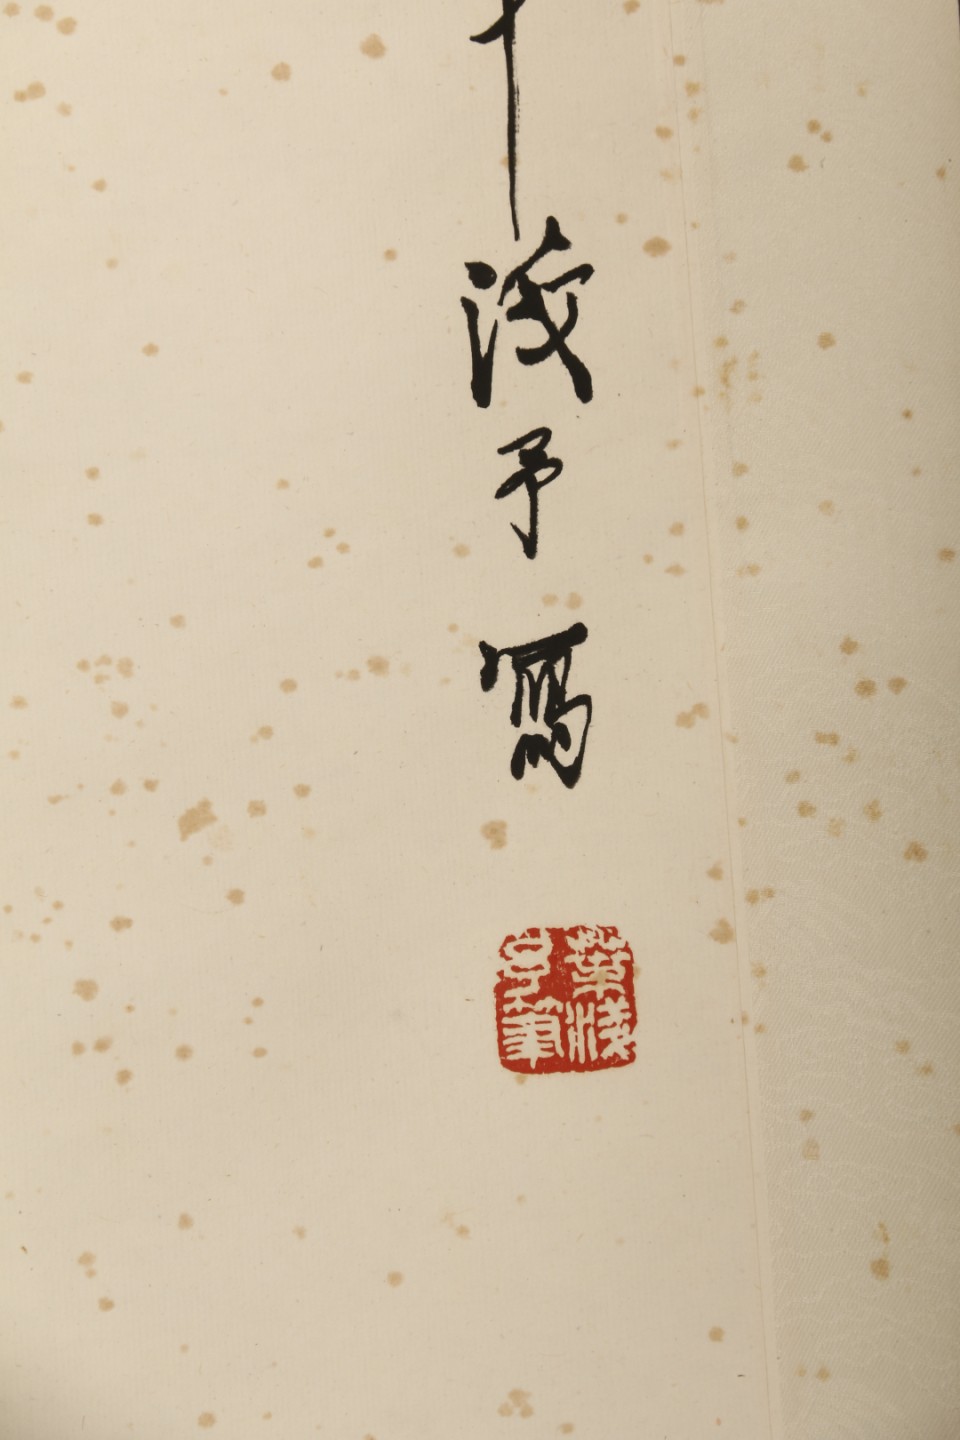 淺予寫
葉淺予筆